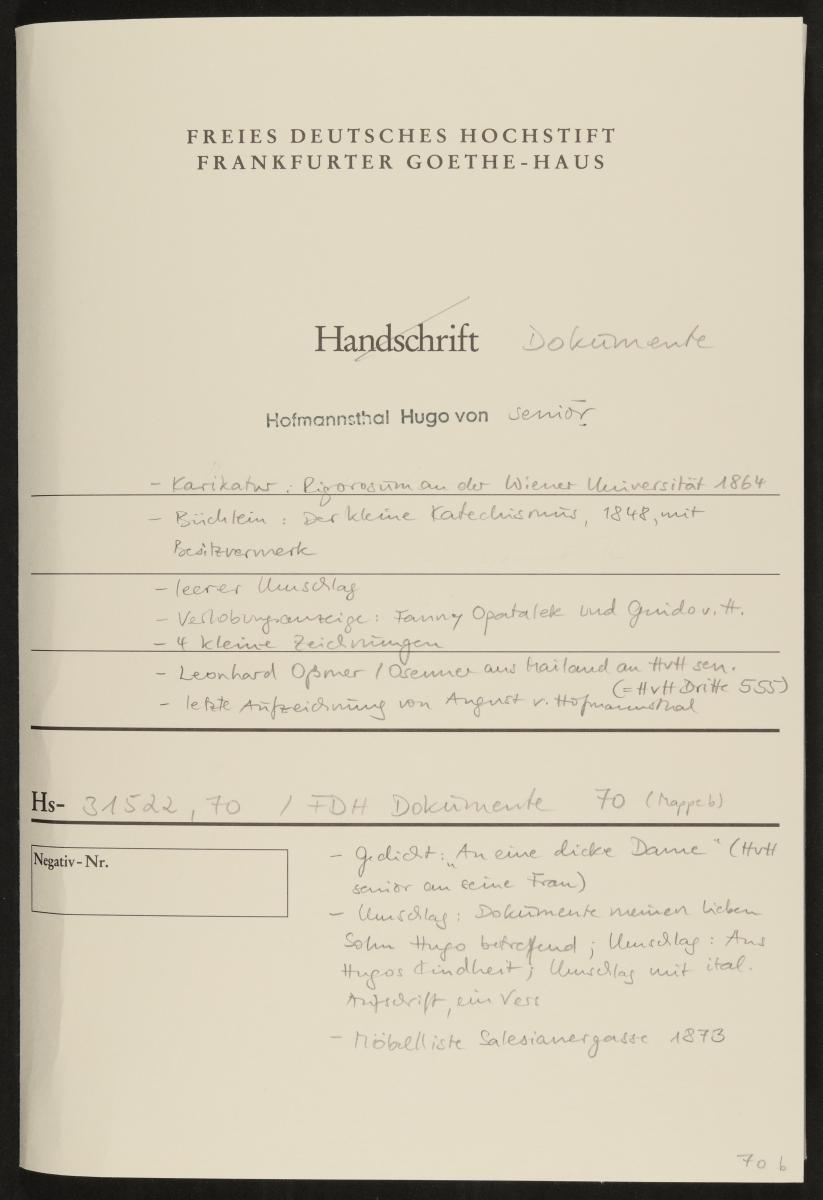 FREIES DEUTSCHES HOCHSTIFT
FRANKFURTER GOETHE-HAUS
Handschrift Dokumente
Hofmannsthal Hugo von senior
- Karikatur: Rigorosum an der Wiener Universität 1864
- Büchlein: Der kleine Katechismus, 1848, mit
Besitzvermerk
- leerer Umschlag
- Verlobungsanzeige: Fanny Opatalek und Guido v. H.
- 4 kleine Zeichnungen
- Leonhard Oßmer / Osenner aus Mailand an HvH sen.
(= HvH Dritte 555)
- letzte Aufzeichnung von August v. Hofmannsthal
Hs- 31522, 70 / FDH Dokumente 70 (Mappe b)
Negativ-Nr.
- Gedicht: „An eine dicke Dame" (HvH
senior an seine Frau)
- Umschlag: Dokumente meinen lieben
Sohn Hugo betreffend; Umschlag: Aus
Hugos Kindheit; Umschlag mit ital.
Aufschrift, ein Vers
- Möbelliste Salesianergasse 1873
70 b